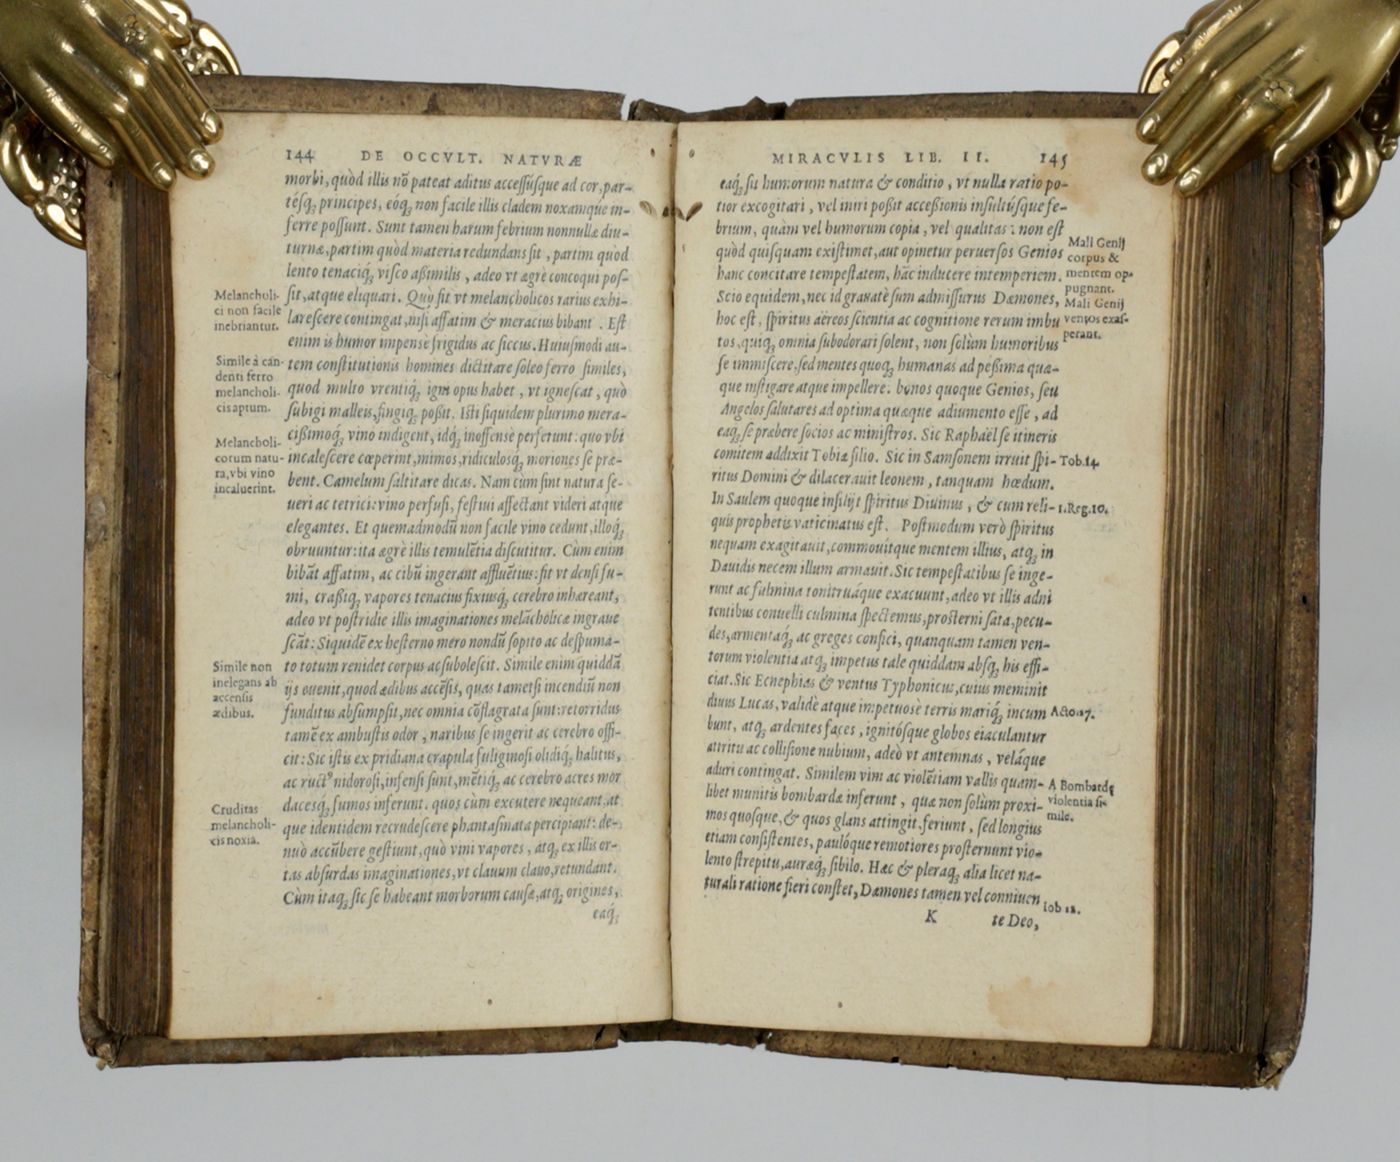 144 DE OCCVLT. NATVRÆ
morbi, quòd illis nō pateat aditus accessúsque ad cor, par-
tésq́; principes, eóq́; non facile illis cladem noxamq́ue in-
ferre possunt. Sunt tamen harum febrium nonnullæ diu-
turnæ, partim quòd materia redundans sit, partim quòd
lento tenaciq́; visco aßimilis, adeo vt ægrè concoqui pos-
sit, atque eliquari. Quò fit vt melancholicos rarius exhi-
larescere contingat, nisi affatim & meracius bibant. Est
enim is humor impensè frigidus ac siccus. Huiusmodi au-
tem constitutionis homines dictitare soleo ferro similes,
quod multo vrentiq́; igni opus habet, vt ignescat, quò
subigi malleis, fingiq́; poßit. Isti siquidem plurimo mera-
cißimoq́; vino indigent, idq́; inoffensè perferunt: quo vbi
incalescere cœperint, mimos, ridiculosq́; moriones se præ-
bent. Camelum saltitare dicas. Nam cùm sint natura se-
ueri ac tetrici: vino perfusi, festiui affectant videri atque
elegantes. Et quemadmodū non facile vino cedunt, illoq́;
obruuntur: ita ægrè illis temulētia discutitur. Cùm enim
bibāt affatim, ac cibū ingerant affluētius: fit vt densi fu-
mi, craßiq́; vapores tenacius fixiusq́; cerebro inhæreant,
adeo vt postridie illis imaginationes melācholicæ ingraue
scāt: Siquidē ex hesterno mero nondū sopito ac despuma-
to totum renidet corpus ac subolescit. Simile enim quiddā
ijs euenit, quod ædibus accēsis, quas tametsi incendiū non
funditus absumpsit, nec omnia cōflagrata sunt: retorridus
tamē ex ambustis odor, naribus se ingerit ac cerebro offi-
cit: Sic istis ex pridiana crapula fuliginosi olidiq́; halitus,
ac ruct⁹ nidorosi, infensi sunt, mētiq́; ac cerebro acres mor
dacesq́; fumos inferunt. quos cùm excutere nequeant, at
que identidem recrudescere phantasmata percipiant: de-
nuò accūbere gestiunt, quò vini vapores, atq́; ex illis or-
tas absurdas imaginationes, vt clauum clauo, retundant.
Cùm itaq́; sic se habeant morborum causæ, atq́; origines,
eaq́;
Melancholi-
ci non facile
inebriantur.
Simile à can-
denti ferro
melancholi-
cis aptum.
Melancholi-
corum natu-
ra, vbi vino
incaluerint.
Simile non
inelegans ab
accensis
ædibus.
Cruditas
melancholi-
cis noxia.
MIRACVLIS LIB. II. 145
eaq́; sit humorum natura & conditio, vt nulla ratio po-
tior excogitari, vel iniri poßit acceßionis insultúsque fe-
brium, quàm vel humorum copia, vel qualitas: non est
quòd quisquam existimet, aut opinetur peruersos Genios
hanc concitare tempestatem, hāc inducere intemperiem.
Scio equidem, nec id grauatè sum admissurus Dæmones,
hoc est, spiritus aëreos scientia ac cognitione rerum imbu
tos, quiq́; omnia subodorari solent, non solùm humoribus
se immiscere, sed mentes quoq́; humanas ad peßima quæ-
que instigare atque impellere: bonos quoque Genios, seu
Angelos salutares ad optima quæque adiumento esse, ad
eaq́; se præbere socios ac ministros. Sic Raphaël se itineris
comitem addixit Tobiæ filio. Sic in Samsonem irruit spi-
ritus Domini & dilacerauit leonem, tanquam hœdum.
In Saulem quoque insilijt spiritus Diuinus, & cum reli-
quis prophetis vaticinatus est. Postmodum verò spiritus
nequam exagitauit, commouítque mentem illius, atq́; in
Dauidis necem illum armauit. Sic tempestatibus se inge-
runt ac fulmina tonitruáque exacuunt, adeo vt illis adni
tentibus conuelli culmina spectemus, prosterni sata, pecu-
des, armentaq́; ac greges confici, quanquam tamen ven-
torum violentia atq́; impetus tale quiddam absq́; his effi-
ciat. Sic Ecnephias & ventus Typhonicus, cuius meminit
diuus Lucas, validè atque impetuosè terris mariq́; incum
bunt, atq́; ardentes faces, ignitósque globos eiaculantur
attritu ac collisione nubium, adeò vt antemnas, veláque
aduri contingat. Similem vim ac violētiam vallis quam-
libet munitis bombardæ inferunt, quæ non solùm proxi-
mos quosque, & quos glans attingit, feriunt, sed longius
etiam consistentes, paulóque remotiores prosternunt vio-
lento strepitu, auræq́; sibilo. Hæc & pleraq́; alia licet na-
turali ratione fieri constet, Dæmones tamen vel conniuen
K te Deo,
Mali Genij
corpus &
mentem op-
pugnant.
Mali Genij
ventos exas-
perant.
Tob.14.
1.Reg.10.
Acto.27.
A Bombardę
violentia si-
mile.
Iob 12.